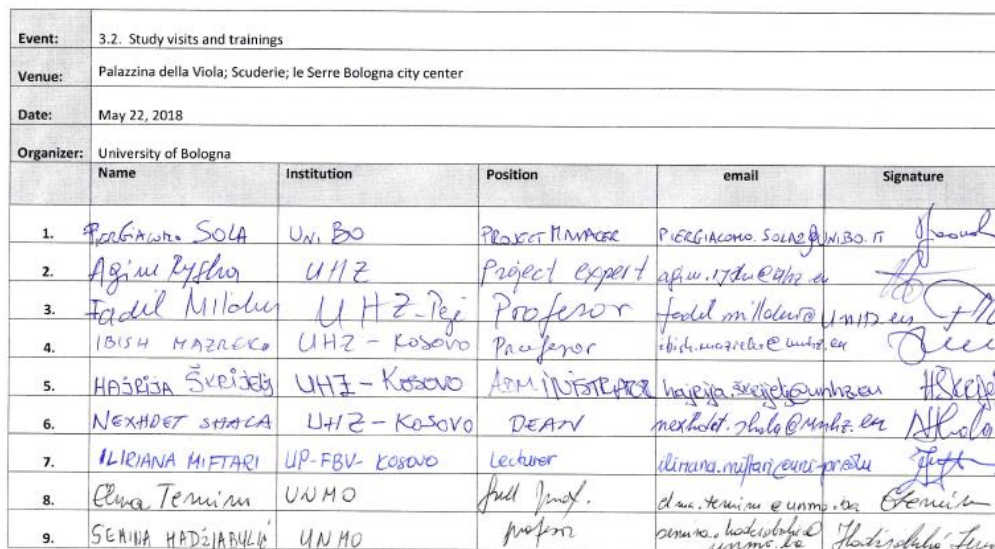 Event: 3.2. Study visits and trainings
Venue: Palazzina della Viola; Scuderie; le Serre Bologna city center
Date: May 22, 2018
Organizer: University of Bologna
Name Institution Position email Signature
1. PIERGIACOMO SOLA UNIBO PROJECT MANAGER PIERGIACOMO.SOLA2@UNIBO.IT
2. Agim Rysha UHZ Project expert
3. Fadil Millaku UHZ-Pejë Profesor
4. IBISH MAZREKU UHZ - KOSOVO Profesor
5. HAJRIJA ŠKRIJELJ UHZ - KOSOVO ADMINISTRATOR hajrija.škrijelj@unhz.eu
6. NEXHDET SHALA UHZ - KOSOVO DEAN nexhdet.shala@unhz.eu
7. ILIRIANA MIFTARI UP-FBV- KOSOVO Lecturer iliriana.miftari@uni-pr.edu
8. Elma Temim UNMO full prof.
9. SEMINA HADŽIABULIĆ UNMO profesor